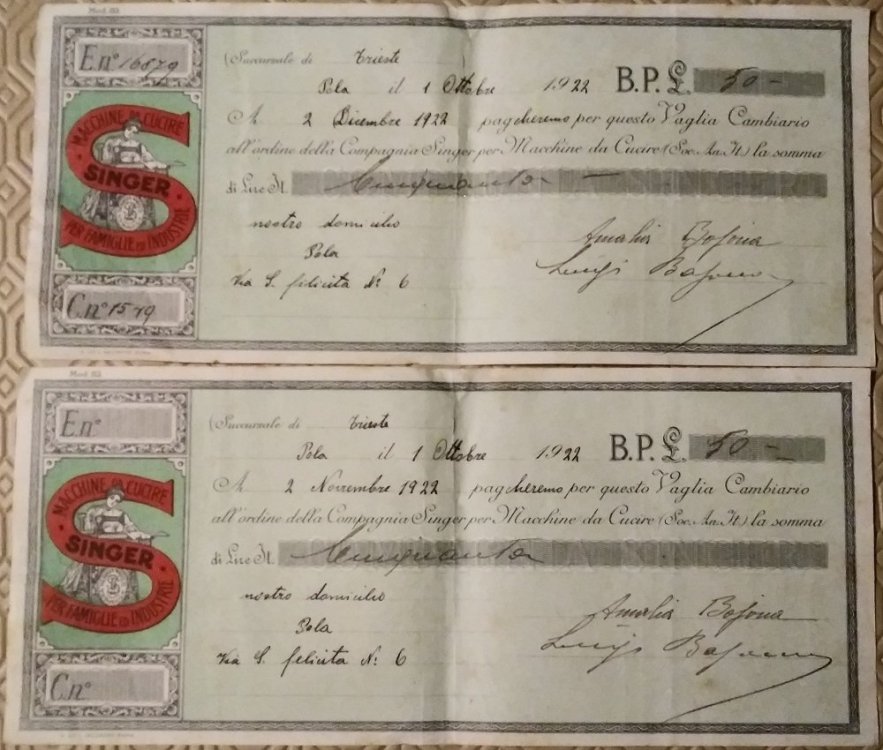 Mod. 112
E. n° 16879
(Succursale di Trieste)
Pola il 1 Ottobre 1922 B.P.£. 50-
A 2 Dicembre 1922 pagheremo per questo Vaglia Cambiario
all'ordine della Compagnia Singer per Macchine da Cucire (Soc. An. It.) la somma
di Lire It. Cinquanta
nostro domicilio
Pola
Via S. felicita N: 6
Amalia
Luigi
MACCHINE DA CUCIRE
SINGER
PER FAMIGLIE ED INDUSTRIE
C. n° 1579
E. n°
(Succursale di Trieste)
Pola il 1 Ottobre 1922 B.P.£. 50-
A 2 Novembre 1922 pagheremo per questo Vaglia Cambiario
all'ordine della Compagnia Singer per Macchine da Cucire (Soc. An. It.) la somma
di Lire It. Cinquanta
nostro domicilio
Pola
Via S. felicita N: 6
Amalia
Luigi
MACCHINE DA CUCIRE
SINGER
PER FAMIGLIE ED INDUSTRIE
C. n°